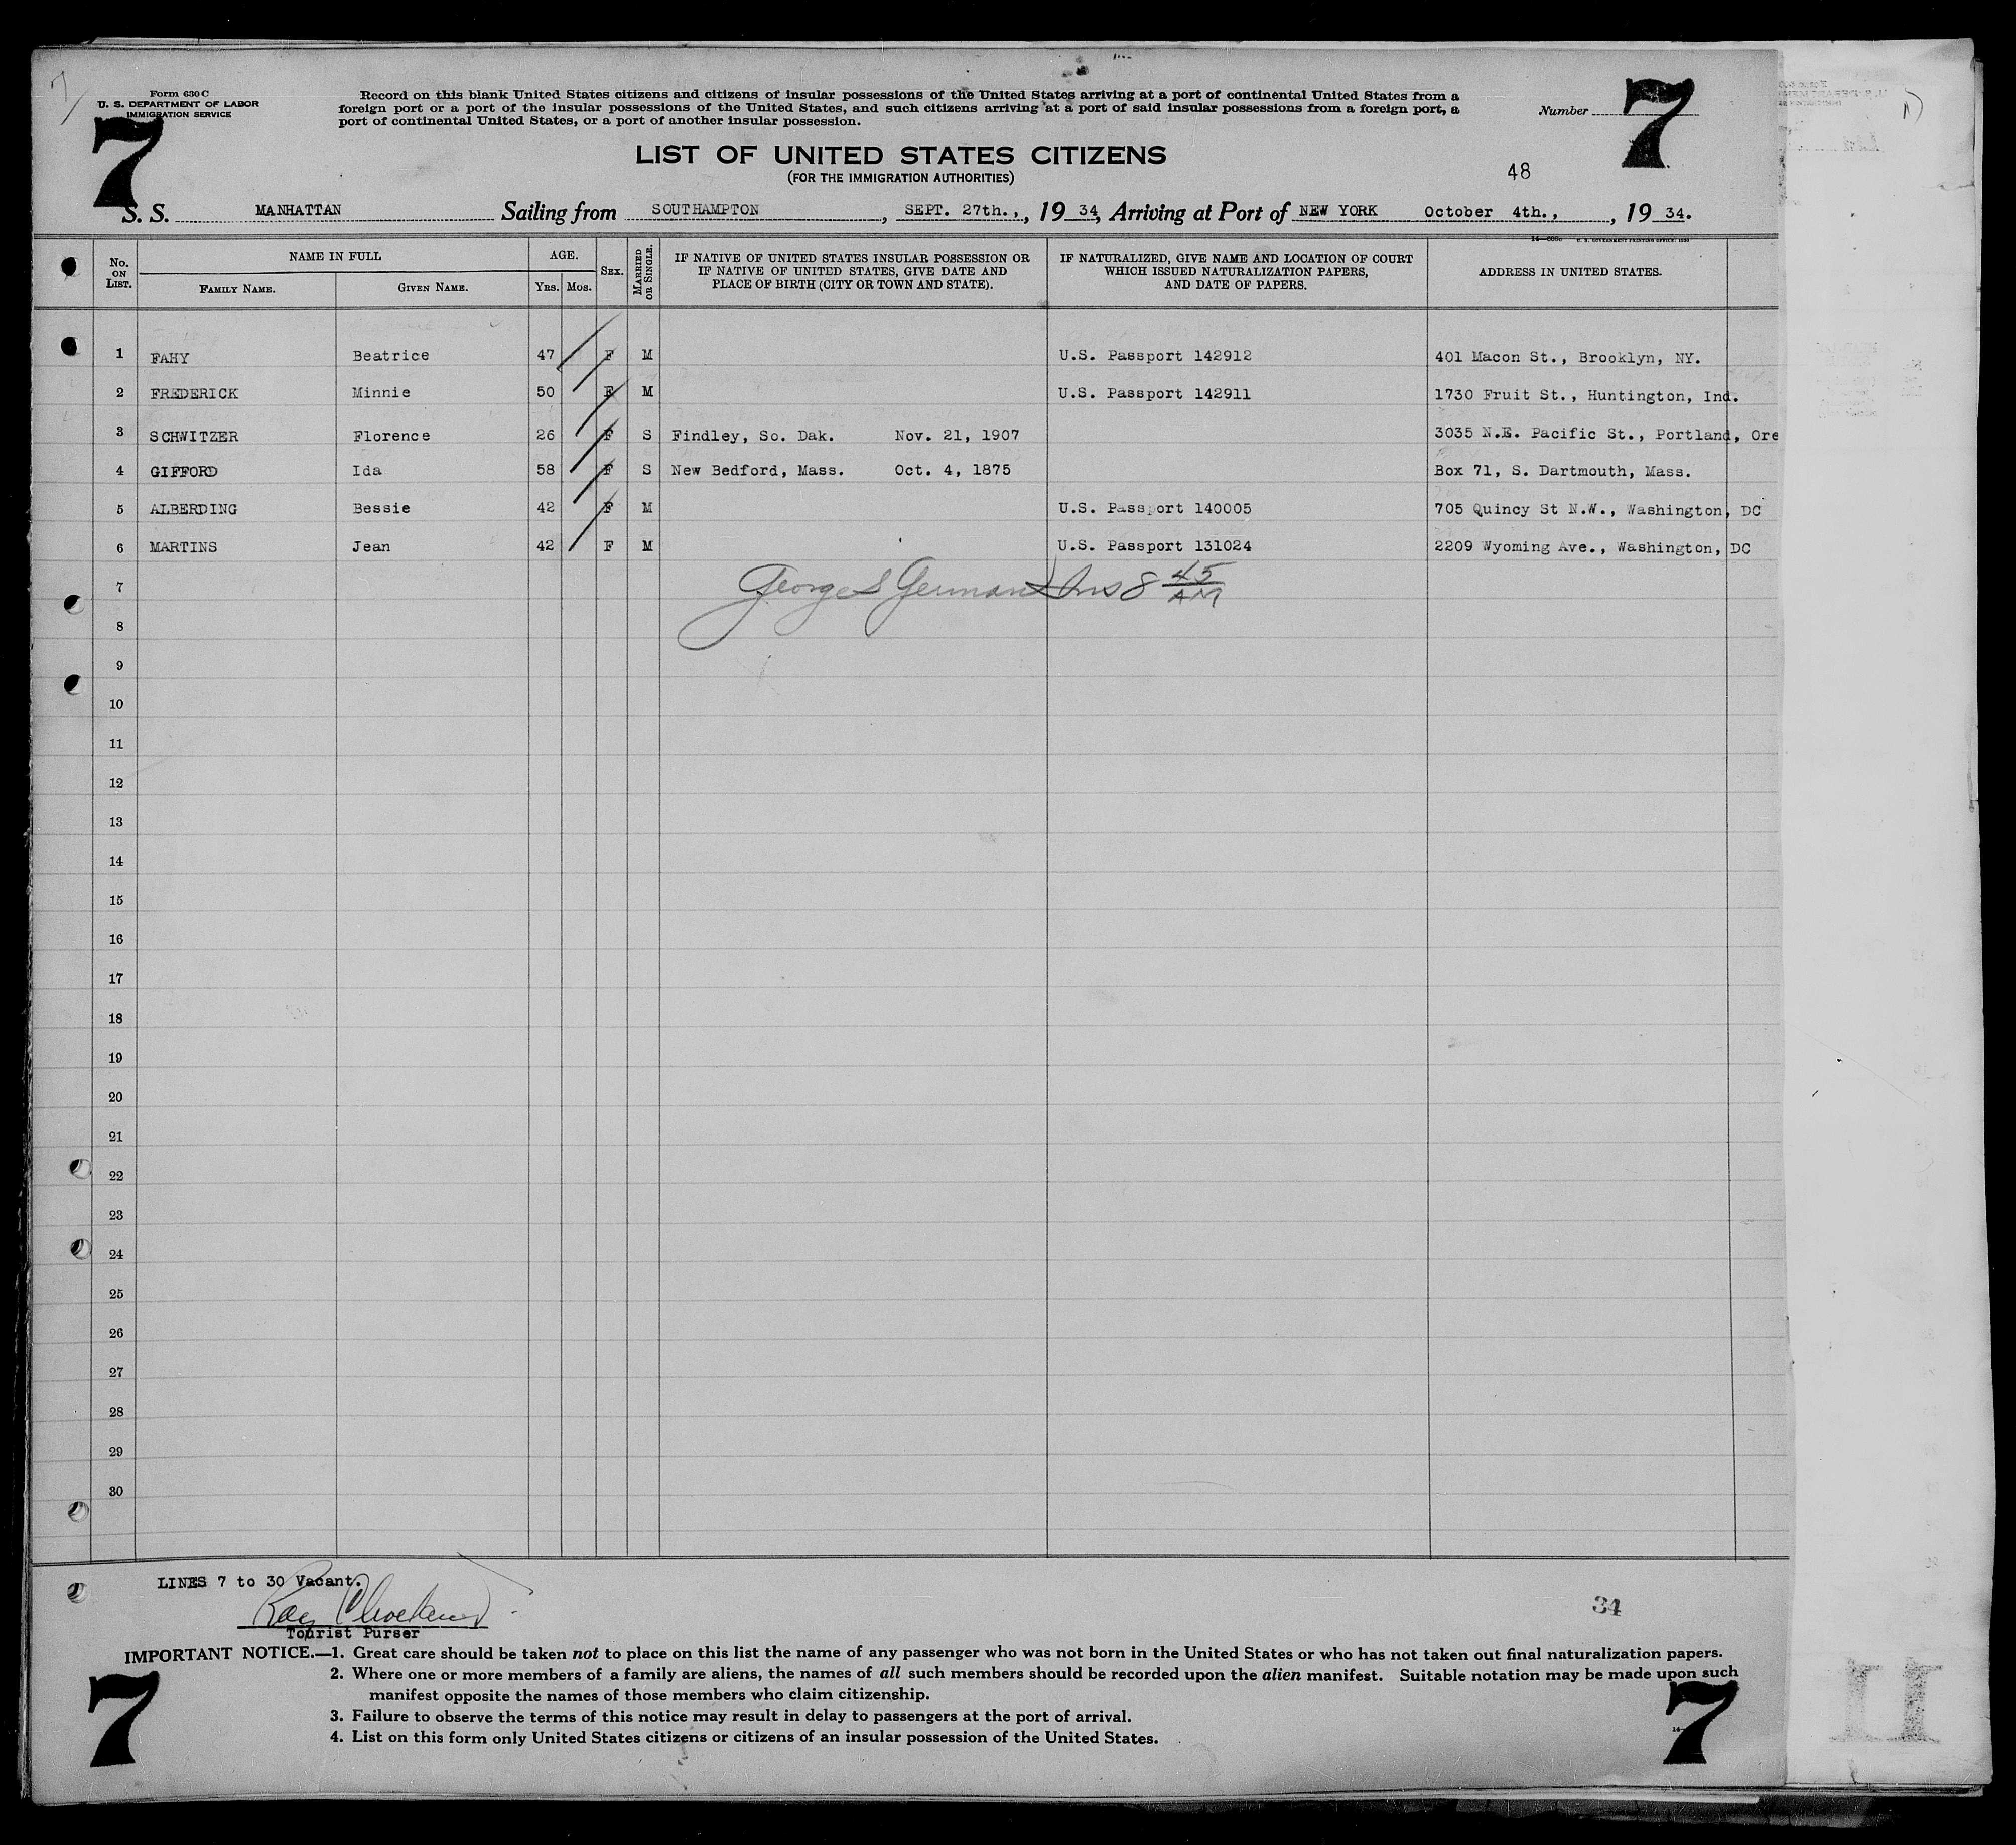 Form 630 C
U. S. DEPARTMENT OF LABOR
IMMIGRATION SERVICE
Record on this blank United States citizens and citizens of insular possessions of the United States arriving at a port of continental United States from a
foreign port or a port of the insular possessions of the United States, and such citizens arriving at a port of said insular possessions from a foreign port, a
port of continental United States, or a port of another insular possession.
Number 7
7
LIST OF UNITED STATES CITIZENS
(FOR THE IMMIGRATION AUTHORITIES)
48
S. S. MANHATTAN Sailing from SOUTHAMPTON, SEPT. 27th., 19 34, Arriving at Port of NEW YORK October 4th., , 19 34.
No. ON LIST. NAME IN FULL FAMILY NAME. GIVEN NAME. AGE. YRS. MOS. SEX. MARRIED OR SINGLE. IF NATIVE OF UNITED STATES INSULAR POSSESSION OR IF NATIVE OF UNITED STATES, GIVE DATE AND PLACE OF BIRTH (CITY OR TOWN AND STATE). IF NATURALIZED, GIVE NAME AND LOCATION OF COURT WHICH ISSUED NATURALIZATION PAPERS, AND DATE OF PAPERS. ADDRESS IN UNITED STATES.
1 FAHY Beatrice 47 F M U.S. Passport 142912 401 Macon St., Brooklyn, NY.
2 FREDERICK Minnie 50 F M U.S. Passport 142911 1730 Fruit St., Huntington, Ind.
3 SCHWITZER Florence 26 F S Findley, So. Dak. Nov. 21, 1907 3035 N.E. Pacific St., Portland, Ore
4 GIFFORD Ida 58 F S New Bedford, Mass. Oct. 4, 1875 Box 71, S. Dartmouth, Mass.
5 ALBERDING Bessie 42 F M U.S. Passport 140005 705 Quincy St N.W., Washington, DC
6 MARTINS Jean 42 F M U.S. Passport 131024 2209 Wyoming Ave., Washington, DC
7 George S German Ins 8 45 AM
8
9
10
11
12
13
14
15
16
17
18
19
20
21
22
23
24
25
26
27
28
29
30
LINES 7 to 30 Vacant.
Tourist Purser
34
IMPORTANT NOTICE.—1. Great care should be taken not to place on this list the name of any passenger who was not born in the United States or who has not taken out final naturalization papers.
2. Where one or more members of a family are aliens, the names of all such members should be recorded upon the alien manifest. Suitable notation may be made upon such
manifest opposite the names of those members who claim citizenship.
3. Failure to observe the terms of this notice may result in delay to passengers at the port of arrival.
4. List on this form only United States citizens or citizens of an insular possession of the United States.
7
7
11